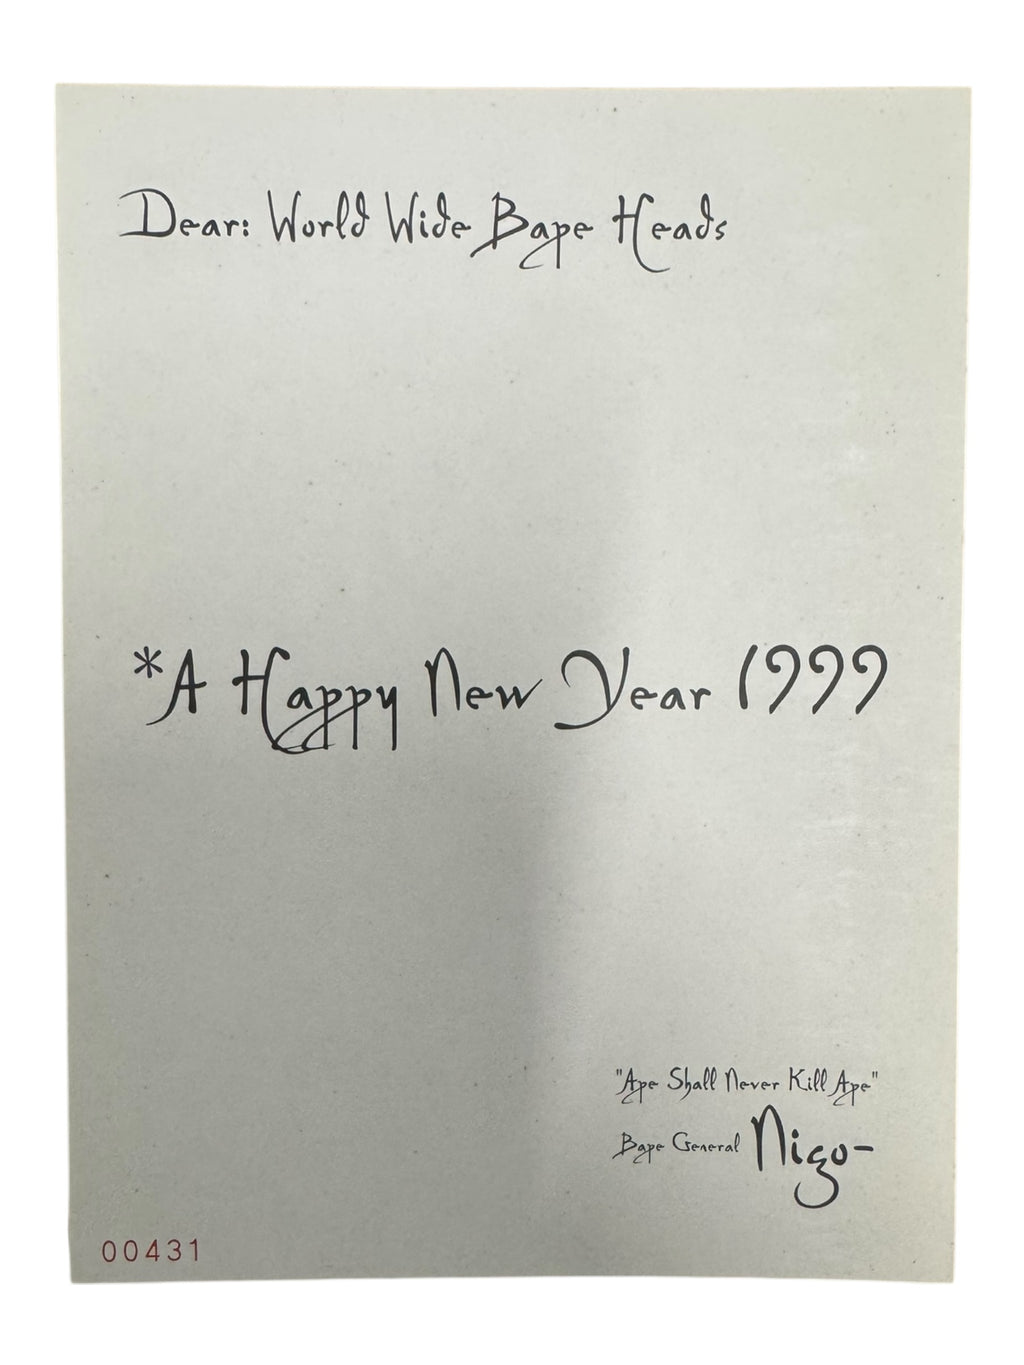 Dear: World Wide Bape Heads
*A Happy New Year 1999
"Ape Shall Never Kill Ape"
Bape General Nigo-
00431